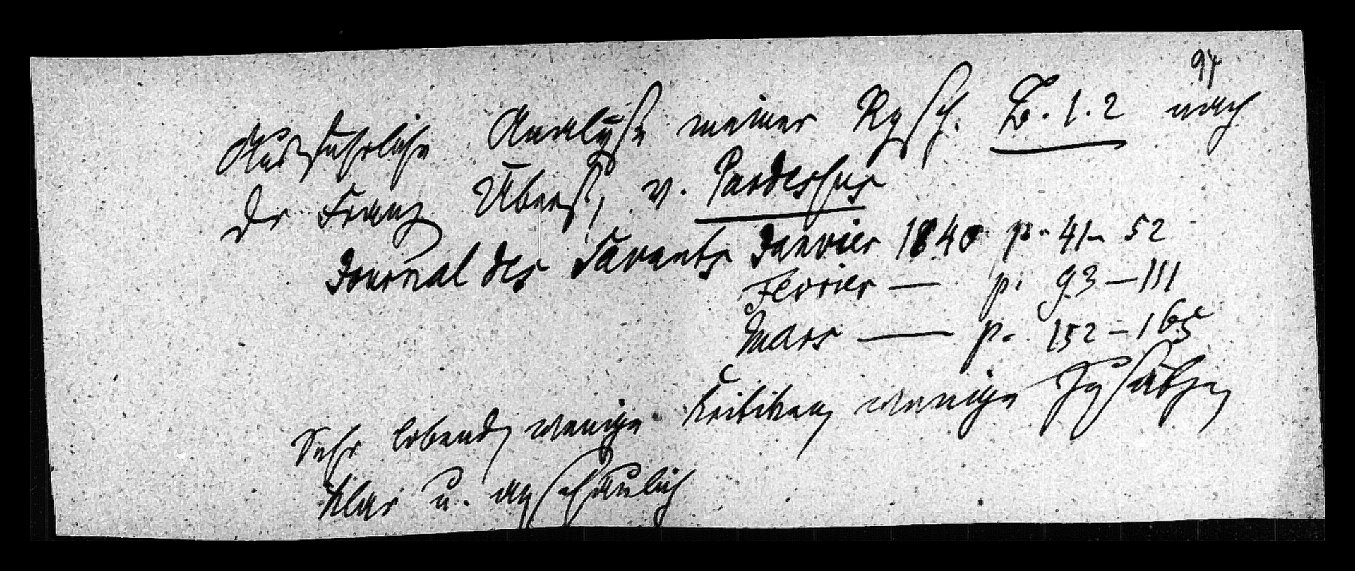 94
Ausführliche Analyse meiner Rgsch. B. 1. 2 nach
der Franz Übers, v. Pardessus
Journal des Savants Janvier 1840 p. 41 – 52
Fevrier — p. 93 – 111
Mars — p. 152 – 165
Sehr lobend, wenige Kritiken, wenige Zusätze,
klar u. anschaulich